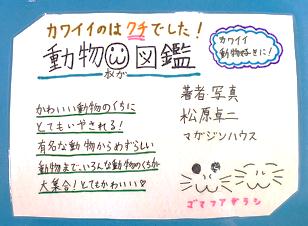 カワイイのはクチでした！
動物の図鑑
カワイイ
動物好きに！
かわいい動物のくちに
とてもいやされる！
有名な動物からめずらしい
動物まで、いろんな動物のくちが
大集合！とてもかわいい
著者・写真
松原卓二
マガジンハウス
ゴマフアザラシ